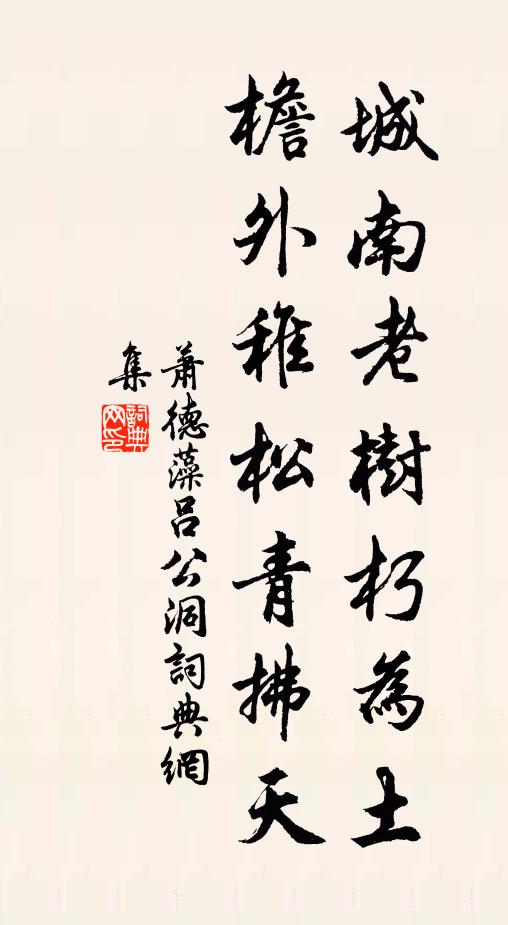 城南老樹朽為土
檐外稚松青拂天
蕭德藻呂公洞詞典網
集
詞典
网印